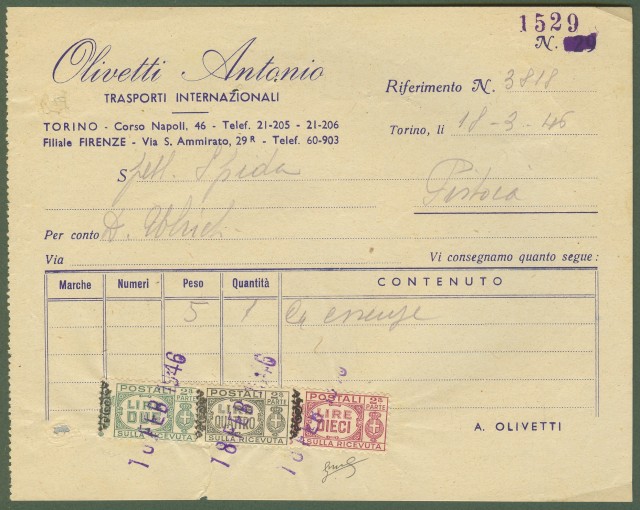 1529
N. 29
Olivetti Antonio
TRASPORTI INTERNAZIONALI
TORINO - Corso Napoli, 46 - Telef. 21-205 - 21-206
Filiale FIRENZE - Via S. Ammirato, 29 R - Telef. 60-903
Riferimento N. 3818
Torino, li 18-3-46
Spett. Spida
Pistoia
Per conto D. Ulrich
Via
Vi consegnamo quanto segue:
Marche Numeri Peso Quantità CONTENUTO
5 1 essenze
POSTALI 2ª PARTE
LIRE
SULLA RICEVUTA
POSTALI 2ª PARTE
LIRE QUATTRO
SULLA RICEVUTA
POSTALI 2ª PARTE
LIRE DIECI
SULLA RICEVUTA
18 FEB 1946
A. OLIVETTI